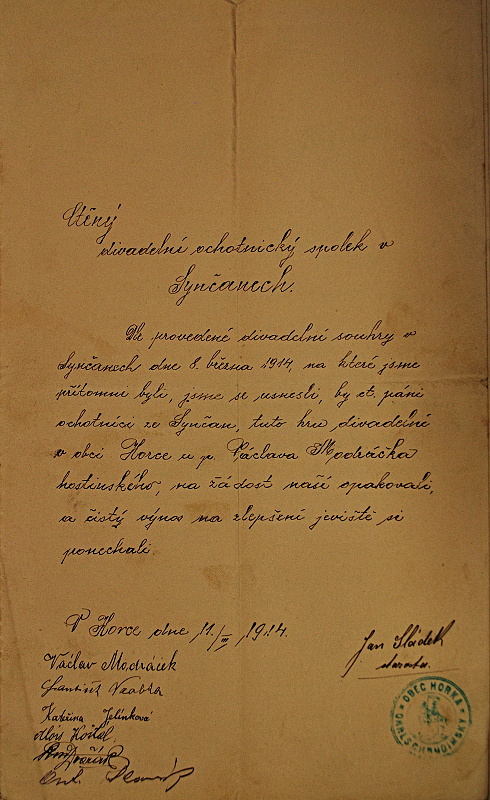 Ctěný
divadelní ochotnický spolek v
Synčanech.
Ve provedené divadelní souhry v
Synčanech dne 8. března 1914, na které jsme
přítomni byli, jsme se usnesli, by ct. páni
ochotníci ze Synčan, tuto hru divadelní
v obci Horce u p. Václava Modráčka
hostinského, na žádost naší opakovali,
a čistý výnos na zlepšení jeviště si
ponechali.
V Horce dne 11./III 1914.
Jan Sládek
starosta.
Václav Modráček
František
Kateřina Jelínková
Alois Košťál
Dvořák
Ant.
OBEC HORKA
OKRES CHRUDIMSKÝ